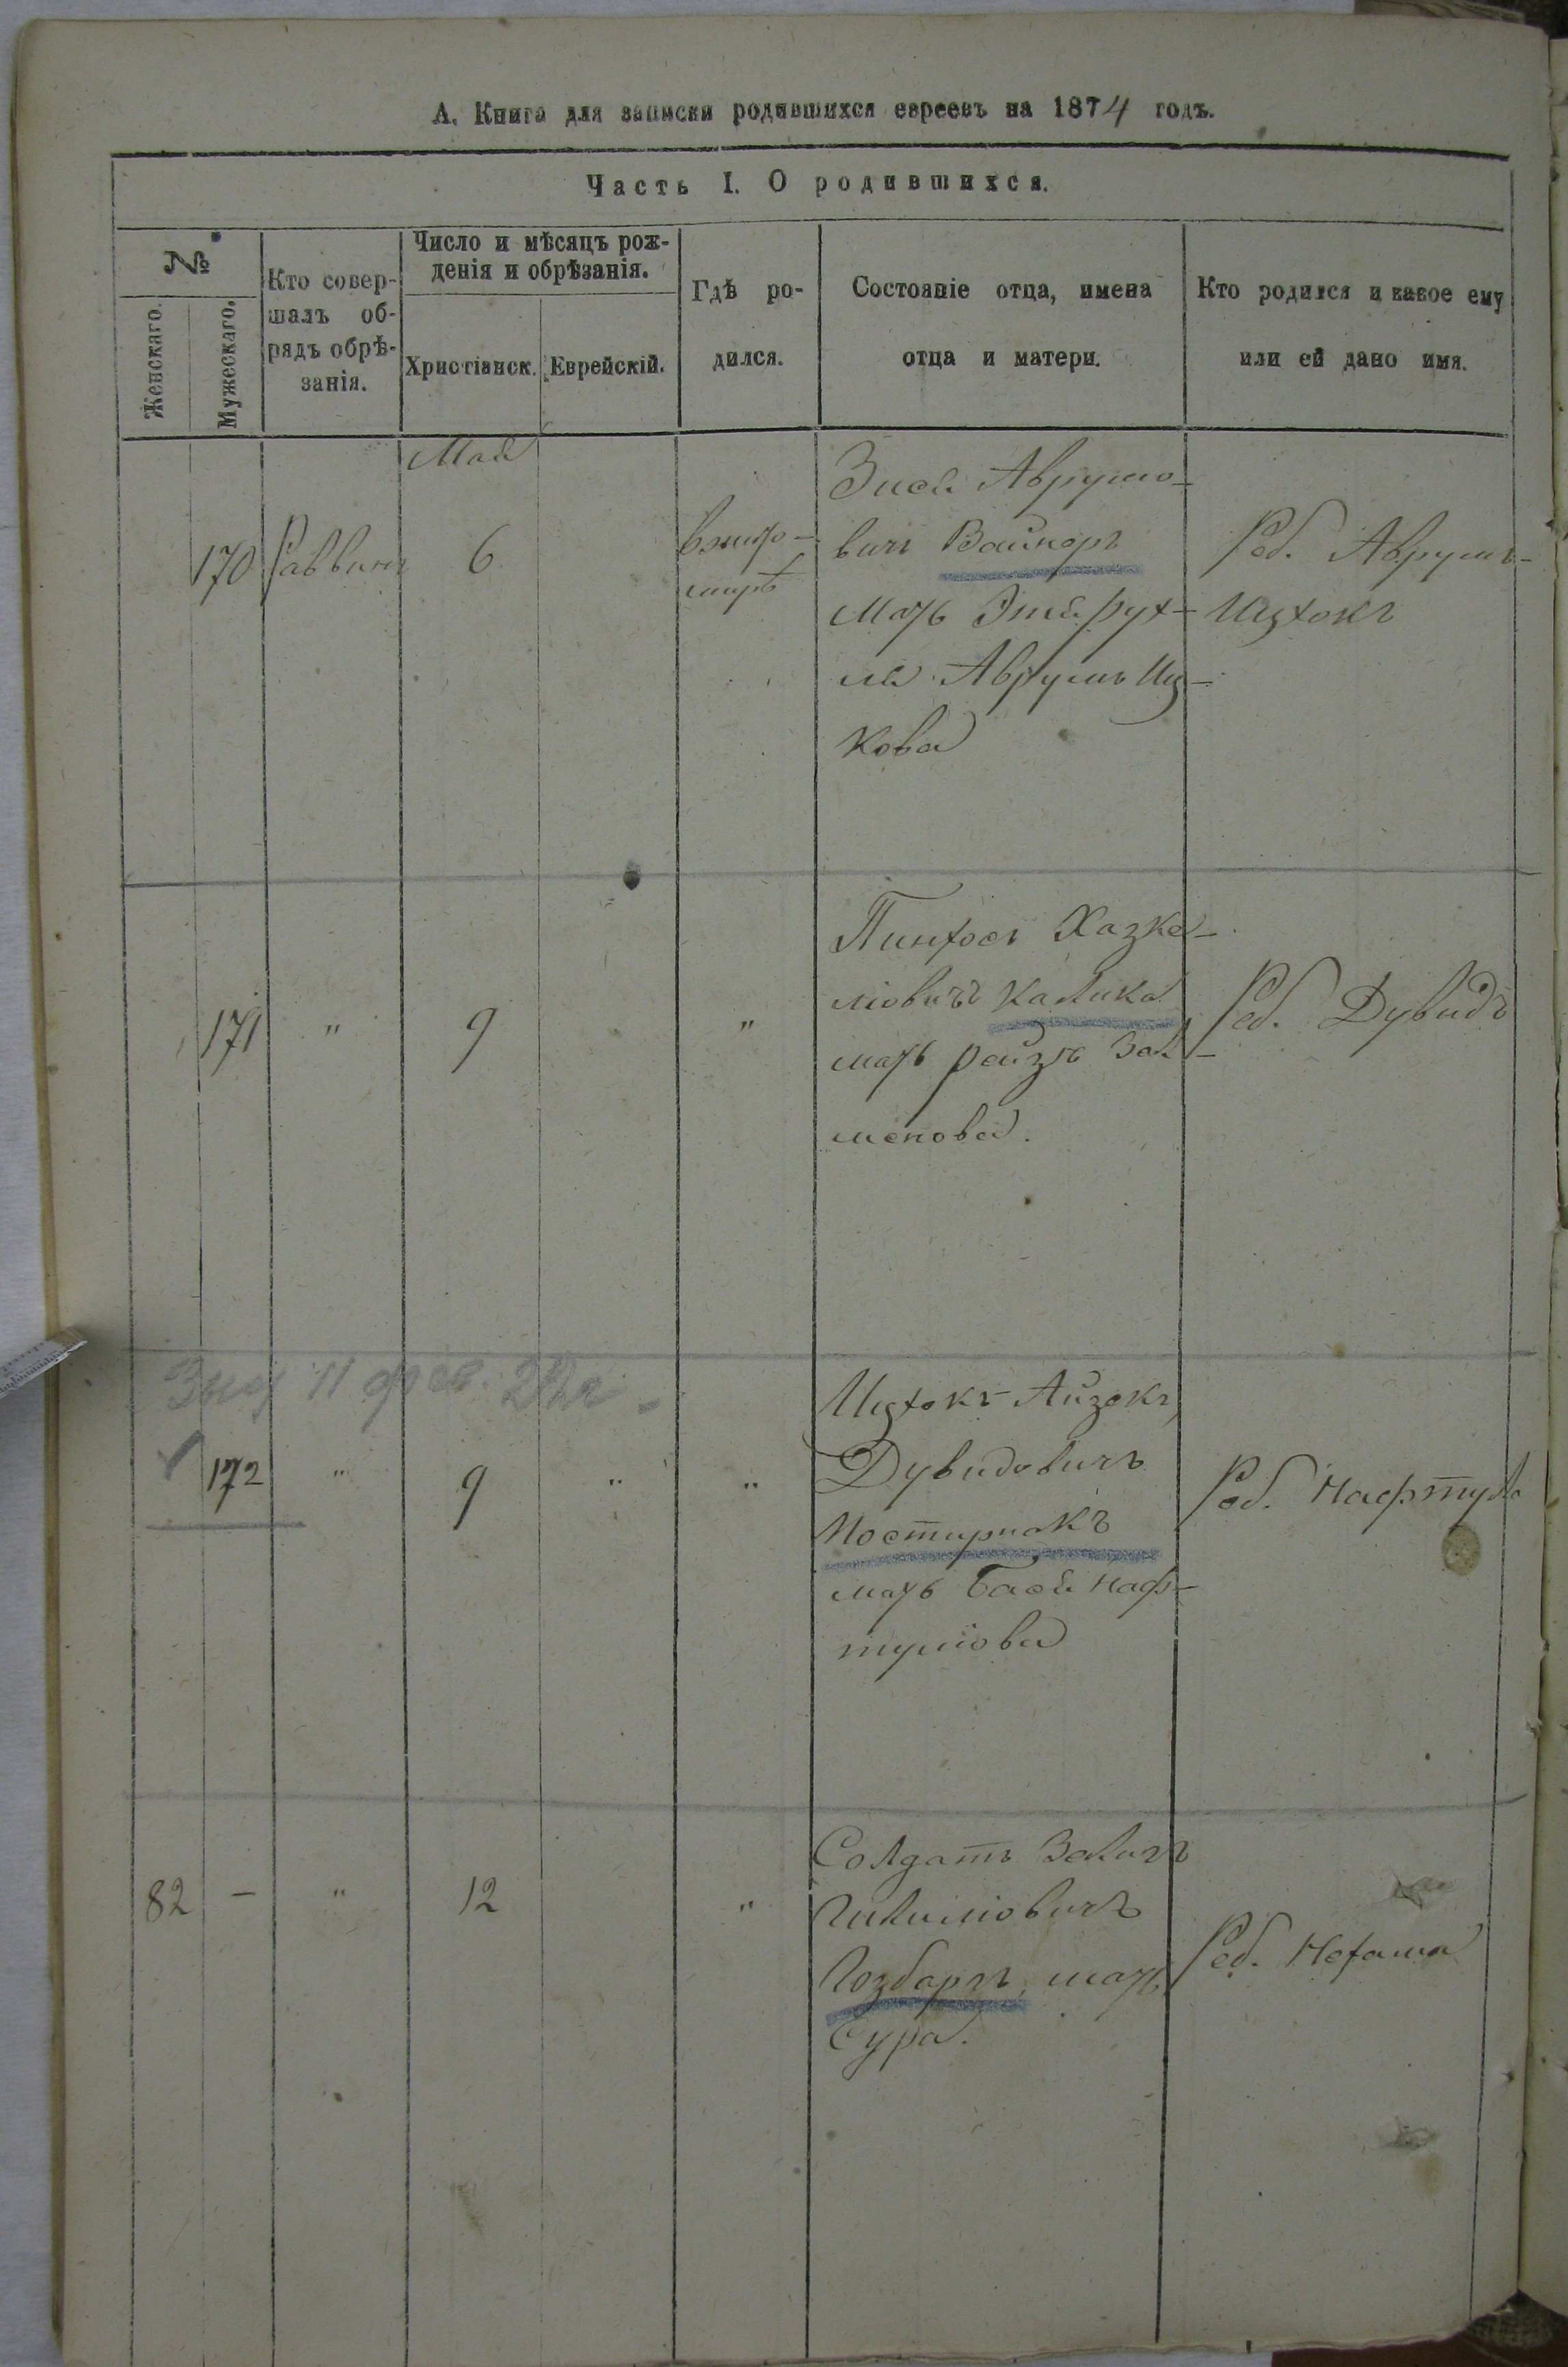 А. Книга для записки родившихся евреевъ на 1874 годъ.
Часть I. О родившихся.
№
Женскаго.
Мужескаго.
Кто совер-
шалъ об-
рядъ обрѣ-
занія.
Число и мѣсяцъ рож-
денія и обрѣзанія.
Христіанск.
Еврейскій.
Гдѣ ро-
дился.
Состояніе отца, имена
отца и матери.
Кто родился и какое ему
или ей дано имя.
Май
170
Раввинъ
6
вжито-
мирѣ
Зися Аврумо-
вичъ Вайнеръ
Мать Этя Рух-
ля Аврумъ Иц-
кова
Реб. Аврумъ-
Ицхокъ
171
"
9
"
Пинхосъ Хазке-
ліовичъ Калика
мать рейзя Зел-
манова.
Реб. Дувидъ
11 фев. 22г.
172
"
9
"
"
Ицхокъ-Айзокъ
Дувидовичъ
Постырнакъ
мать Бася Наф-
туліова
Реб. Нафтула
82
-
"
12
"
Солдатъ Зелигъ
Гозбаръ, мать
Сура.
Реб. Нехама